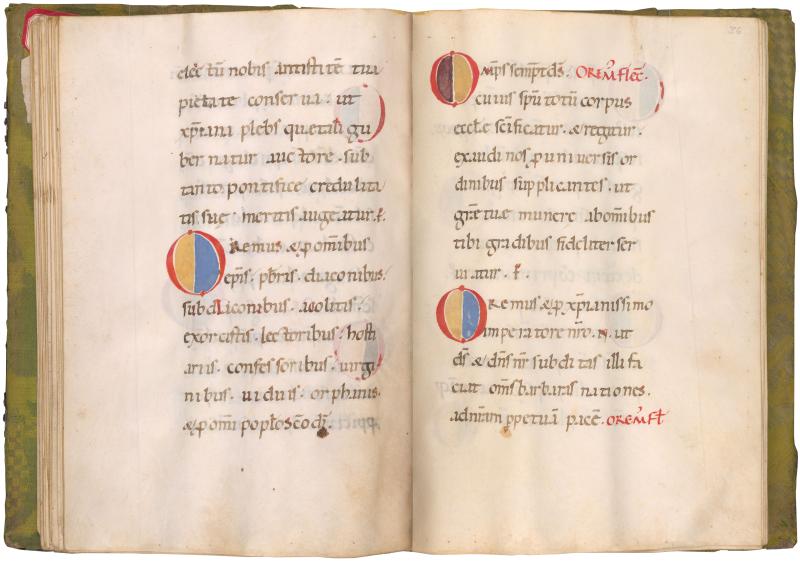 electu nobis antistitē tua
pietate conserua. ut
xp̄iana plebs que tali gu
bernatur auctore. sub
tanto pontifice credulita
tis sue meritis augeatur. ꝑ.
Oremus & ꝑ omībus
epīs. pb̄ris. diaconibus.
subdiaconibus. acolitis.
exorcistis. lectoribus. hosti
ariis. confessoribus. uirgi
nibus. uiduis. orphanis.
& ꝑ omī poplo sc̄o dī.
36
Omp̄s sempt̄ ds̄. OREM' flec̄.
cuius sp̄u totū corpus
eccl̄e sc̄ificatur. & regitur.
exaudi nos ꝑ uniuersis or
dinibus supplicantes. ut
gr̄e tue munere ab om̄ibus
tibi gradibus fideliter ser
uiatur. ꝑ.
Oremus & ꝑ xp̄ianissimo
imperatore nr̄o. N. ut
ds̄ & dn̄s nr̄ subditas illi fa
ciat om̄s barbaras nationes.
ad nr̄am ꝑpetuā pacē. OREM' Fl̄